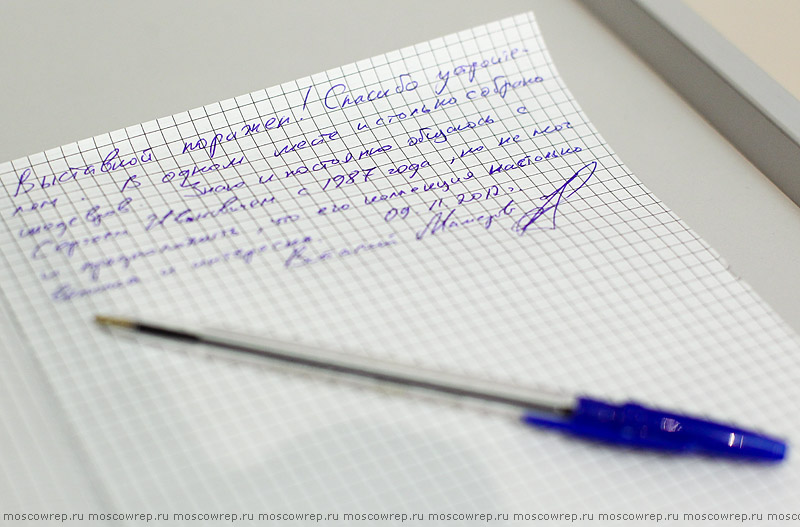 Выставкой поражен! Спасибо устроите-
лям. В одном месте и столько собрано
шедевров. Знаю и постоянно общаюсь с
Сергеем Ивановичем с 1987 года, но не мог
и предположить, что его коллекция настолько
и интересна.
09.11.2012г.
Виталий
moscowrep.ru moscowrep.ru moscowrep.ru moscowrep.ru moscowrep.ru moscowrep.ru moscowrep.ru moscowrep.ru moscowrep.ru